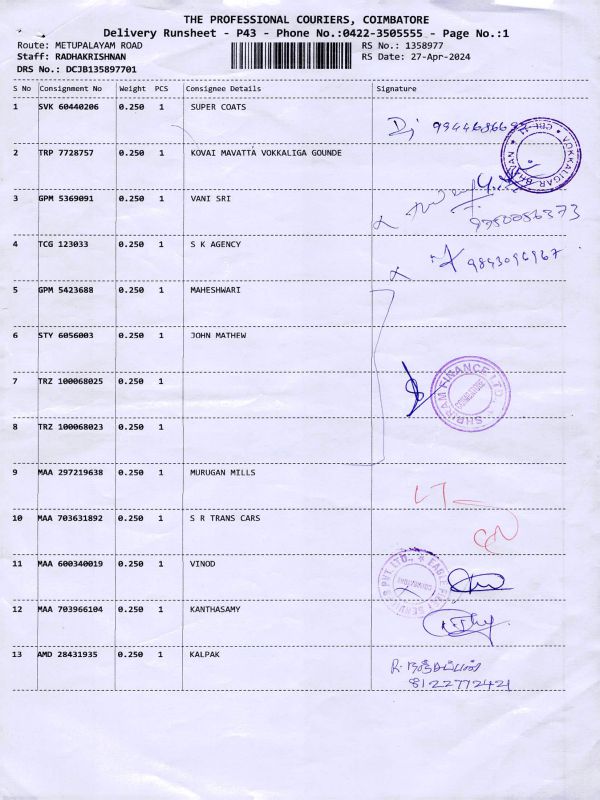 THE PROFESSIONAL COURIERS, COIMBATORE
Delivery Runsheet - P43 - Phone No.:0422-3505555 - Page No.:1
Route: METUPALAYAM ROAD RS No.: 1358977
Staff: RADHAKRISHNAN RS Date: 27-Apr-2024
DRS No.: DCJB135897701
S No Consignment No Weight PCS Consignee Details Signature
1 SVK 60440206 0.250 1 SUPER COATS
2 TRP 7728757 0.250 1 KOVAI MAVATTA VOKKALIGA GOUNDE
VOKKALIGAR BHAVAN
3 GPM 5369091 0.250 1 VANI SRI
4 TCG 123033 0.250 1 S K AGENCY
9843096967
5 GPM 5423688 0.250 1 MAHESHWARI
6 STY 6056003 0.250 1 JOHN MATHEW
7 TRZ 100068025 0.250 1
SHRIRAM FINANCE LTD.
COIMBATORE
8 TRZ 100068023 0.250 1
9 MAA 297219638 0.250 1 MURUGAN MILLS
10 MAA 703631892 0.250 1 S R TRANS CARS
11 MAA 600340019 0.250 1 VINOD
12 MAA 703966104 0.250 1 KANTHASAMY
13 AMD 28431935 0.250 1 KALPAK
8122772421